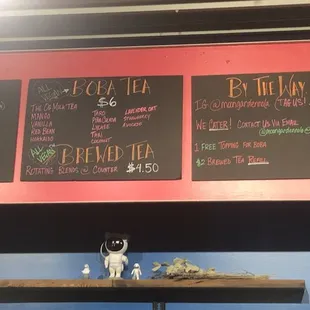 Boba Tea
$6
Mango
Vanilla
Red Bean
Taro
Piña Colada
Lychee
Thai
Coconut
Lavender
Strawberry
Avocado
All
Vegan
Brewed Tea
Rotating Blends @ Counter $4.50
By The Way
IG @moongardennola (Tag us!
We Cater! Contact Us Via Email
1 Free Topping for Boba
$2 Brewed Tea Refill